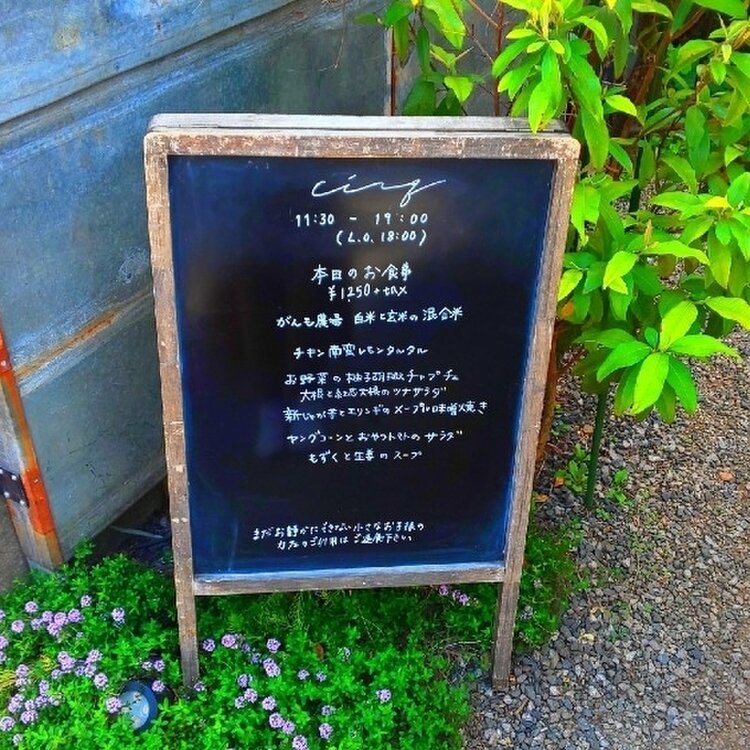 cinq
11:30 - 19:00
(L.O. 18:00)
本日のお食事
¥1250+tax
がんも農場 白米と玄米の混合米
チキン南蛮レモンタルタル
お野菜の柚子胡椒チャプチェ
大根と紅芯大根のツナサラダ
新じゃが芋とエリンギのメープル味噌焼き
ヤングコーンとおやつトマトのサラダ
もずくと生姜のスープ
まだお静かにできない小さなお子様の
カフェのご利用はご遠慮下さい。